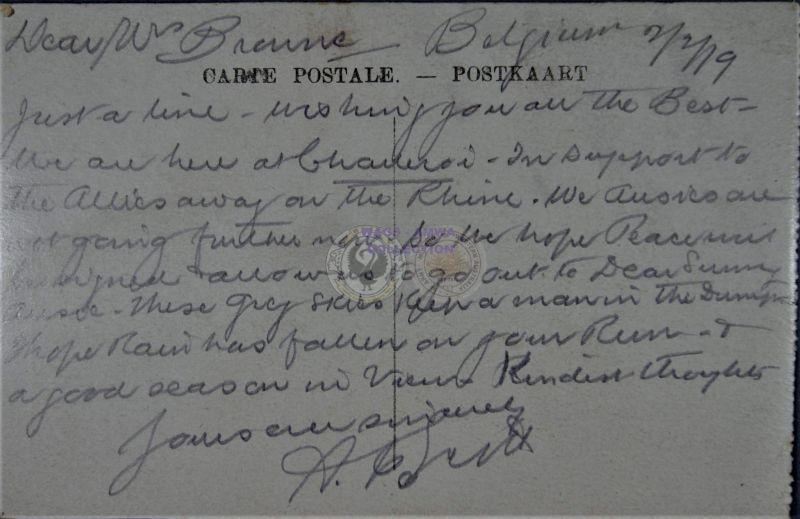 Dear Mrs Browne Belgium 2/2/19
CARTE POSTALE. — POSTKAART
Just a line - wishing you all the Best -
We are here at Charleroi - In support to
the Allies away on the Rhine. We Aussies are
not going further now. So we hope Peace will
be signed & allow us to go out to Dear Sunny
Aussie. These grey skies keep a man in the Dumps
I hope Rain has fallen on your Run - &
a good season in View. Kindest thoughts
Yours sincerely
A.
WAGS AMWA
COLLECTION